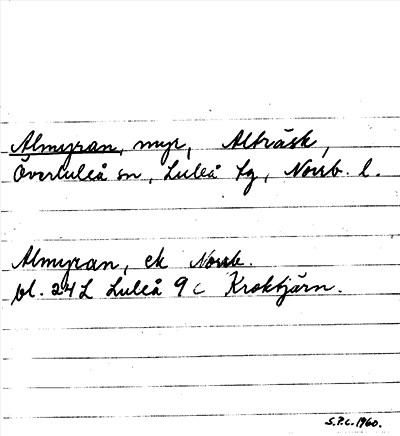 Almyran, myr, Alträsk,
Överluleå sn, Luleå tg, Norrb. l.
Almyran, ek Norrb.
bl. 24L Luleå 9c Kroktjärn.
S.P.C. 1960.